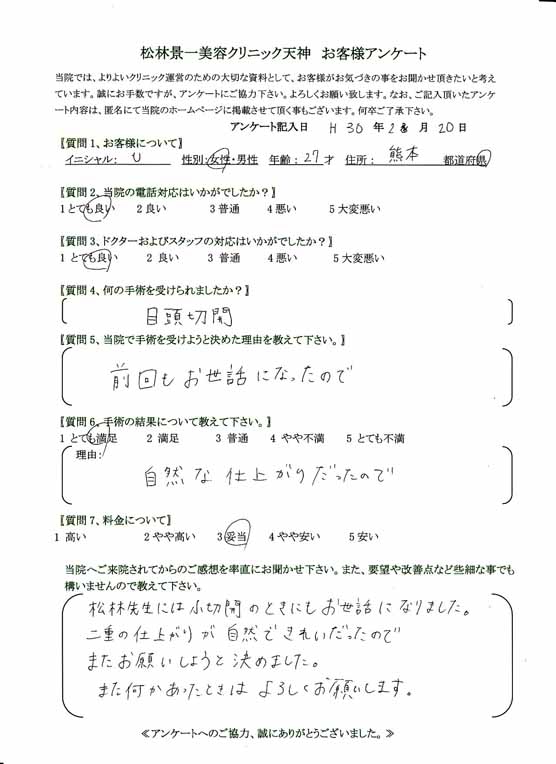 松林景一美容クリニック天神　お客様アンケート
当院では、よりよいクリニック運営のための大切な資料として、お客様がお気づきの事をお聞かせ頂きたいと考え
ています。誠にお手数ですが、アンケートにご協力下さい。よろしくお願い致します。なお、ご記入頂いたアンケ
ート内容は、匿名にて当院のホームページに掲載させて頂く事もございます。何卒ご了承下さい。
アンケート記入日　H 30 年 2 月 20 日
〖質問 1、お客様について〗
イニシャル：　U　性別：女性・男性　年齢：27才　住所：　熊本　都道府県
〖質問 2、当院の電話対応はいかがでしたか？〗
1 とても良い　2 良い　3 普通　4 悪い　5 大変悪い
〖質問 3、ドクターおよびスタッフの対応はいかがでしたか？〗
1 とても良い　2 良い　3 普通　4 悪い　5 大変悪い
〖質問 4、何の手術を受けられましたか？〗
目頭切開
〖質問 5、当院で手術を受けようと決めた理由を教えて下さい。〗
前回もお世話になったので
〖質問 6、手術の結果について教えて下さい。〗
1 とても満足　2 満足　3 普通　4 やや不満　5 とても不満
理由：
自然な仕上がりだったので
〖質問 7、料金について〗
1 高い　2 やや高い　3 妥当　4 やや安い　5 安い
当院へご来院されてからのご感想を率直にお聞かせ下さい。また、要望や改善点など些細な事でも
構いませんので教えて下さい。
松林先生には小切開のときにもお世話になりました。
二重の仕上がりが自然できれいだったので
またお願いしようと決めました。
また何かあったときは よろしくお願いします。
≪アンケートへのご協力、誠にありがとうございました。≫